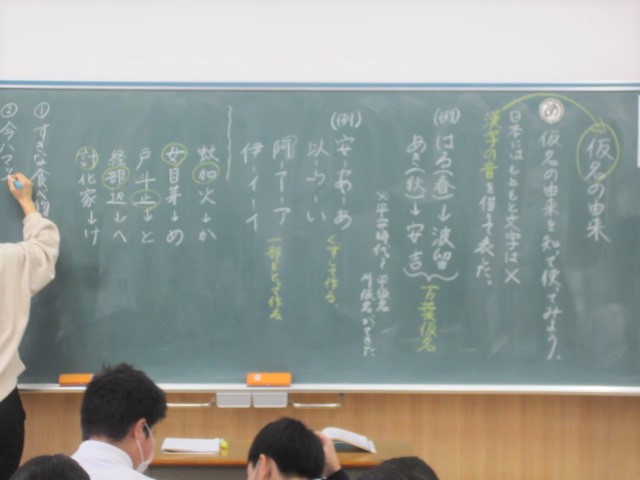 仮名の由来
め 仮名の由来を知って使てみよう。
日本にはもともと文字は×
漢字の音を借りて表した。
(例) はる(春)→波留
あき(秋)→安吉
万葉仮名
※平安時代に平仮名
片仮名ができた
(例) 安→あ→あ
以→い
くずして作る
阿→ア→ア
伊→イ→イ
一部をとって作る
蚊加火→か
女目芽→め
戸斗止→と
経部辺→へ
計化家→け
①すきな食べ物
②今ハマ